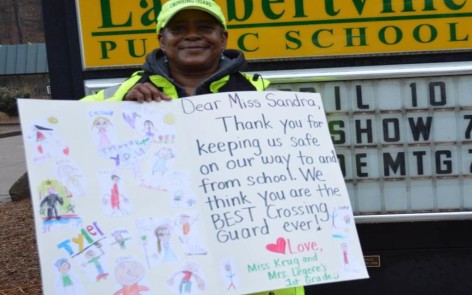 CROSSING GUARD
Lambertville
PUBLIC SCHOOL
IL 10
SHOW 7
EMTG 7
Dear Miss Sandra,
Thank you for
keeping us safe
on our way to and
from school. We
think you are the
BEST Crossing
Guard ever!
Love,
Miss Krug and
Mrs. Legere's
1st Grade
thank
you
Tyler